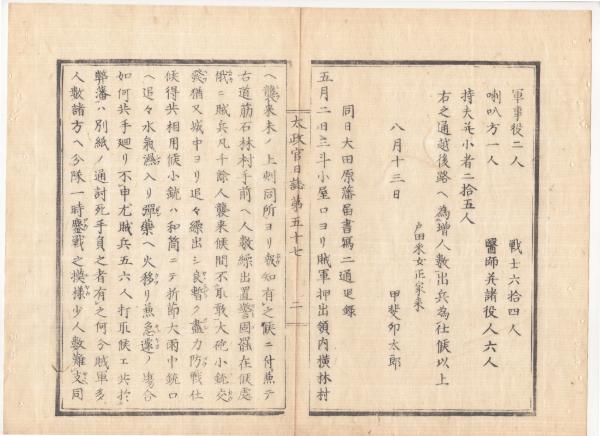 軍事役二人　　　　戦士六拾四人
喇叭方一人　　　　醫師并諸役人六人
持夫并小者二拾五人
右之通越後路ヘ為増人数出兵為仕候以上
戸田釆女正家来
八月十三日　　　　甲斐卯太郎
同日大田原藩届書寫二通足錄
五月二日三斗小屋口ヨリ賊軍押出領内横林村
太政官日誌第五十七　二
ヘ襲来未ノ上刻同所ヨリ報知有之候ニ付兼テ
右道筋石林村手前ヘ人数繰出置警固罷在候處
俄ニ賊兵凡千餘人襲来候間不取敢大砲小銃交
發猶又城中ヨリ追々繰出シ良暫ク盡力防戦仕
候得共相用候小銃ハ和筒ニテ折節大雨中銃口
ヘ追々水氣濕入リ彈藥ヘ火移リ兼急遽ノ場合
如何共手廻リ不申尤賊兵五六人打取候エ共於
弊藩ハ別紙ノ通討死手負之者有之何分賊軍多
人数諸方ヘ分隊一時鏖戦之模様少人数難支同